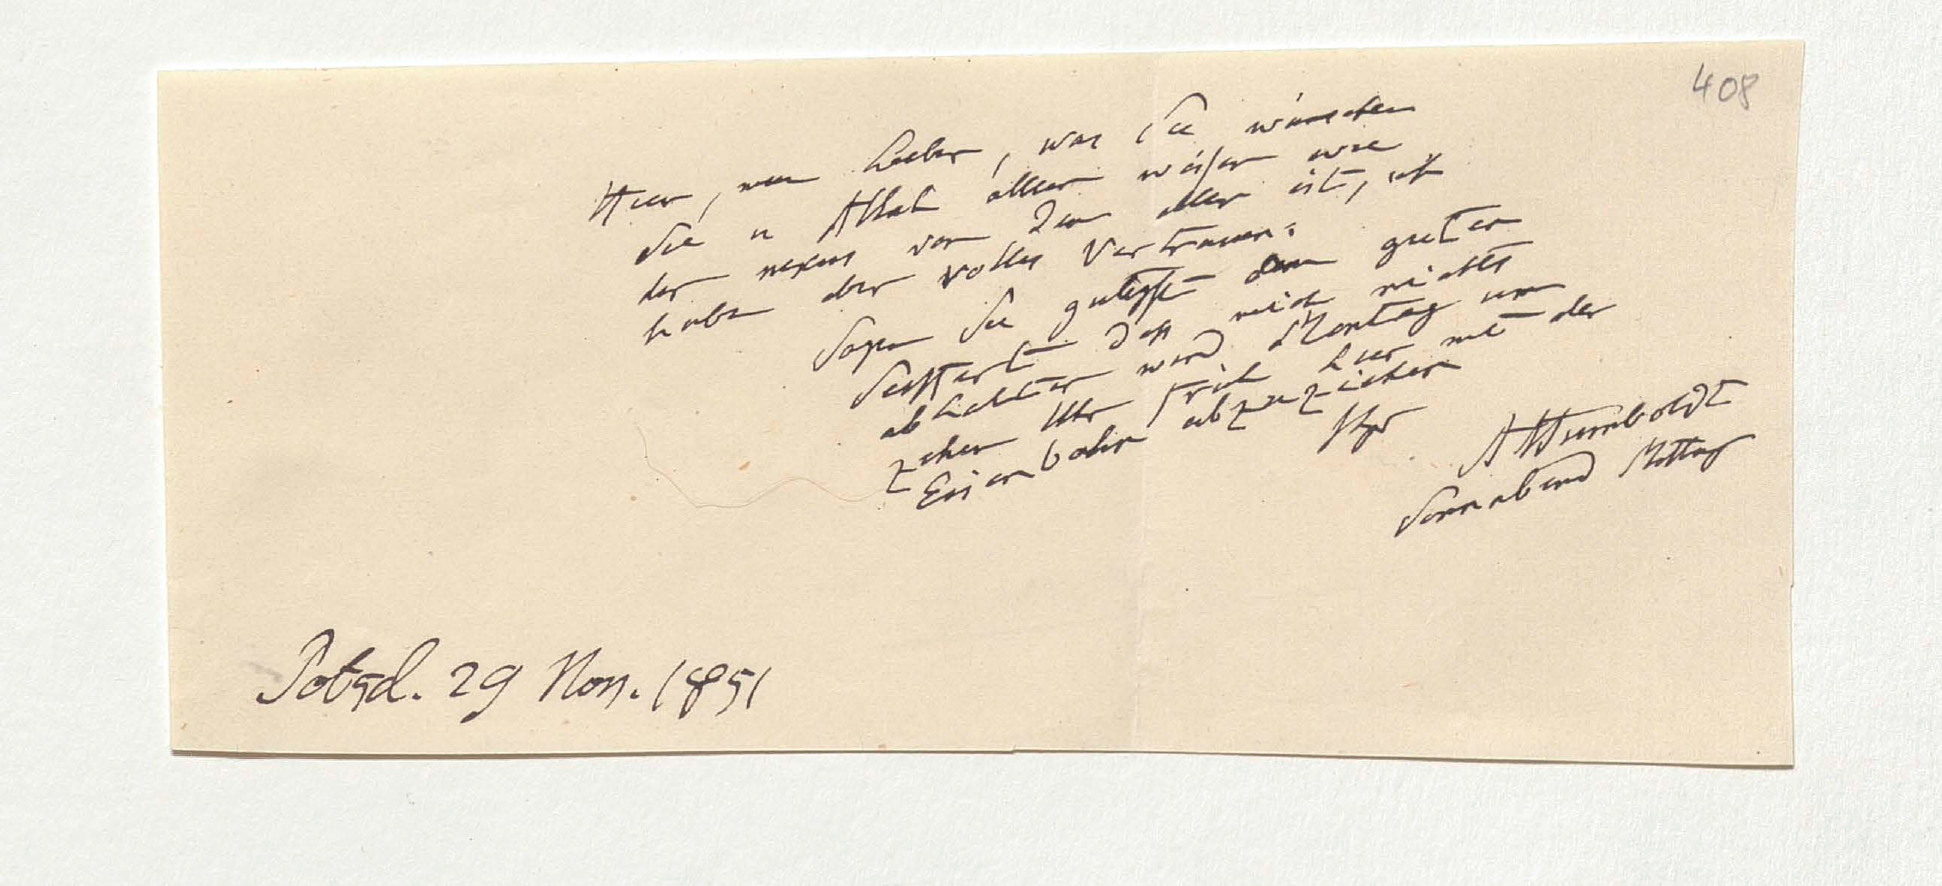 408
Hier, mein Lieber, was Sie wünschen
Sie u Allah allein wissen wie
der nexus von dem allen ist, ich
habe aber volles Vertrauen.
Sagen Sie gütigst dem guten
Seiffert daß mich nichts
abhalten wird Montag um
zehn Uhr früh hier mit der
Eisenbahn abzuziehen
Ihr
A Humboldt
Sonnabend Mittag
Potsd. 29 Nov. 1851